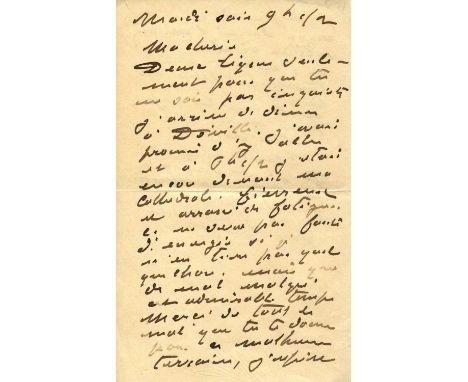 Mardi soir 9 h 1/2
Ma chérie
Deux lignes seule-
ment pour que tu
ne sois pas inquiète
J'arrive de diner
à Déville. J'avais
promis d'y aller
et à 7 h 1/2 j'étais
encore devant ma
cathédrale. Ereinté
et
et ne veux pas faute
d'énergie si je
n'en tire pas quel
que chose. mais que
de mal malgré
cet admirable temps
Merci de tout le
mal que tu te donnes
pour ce malheureux
terrain, j'espère